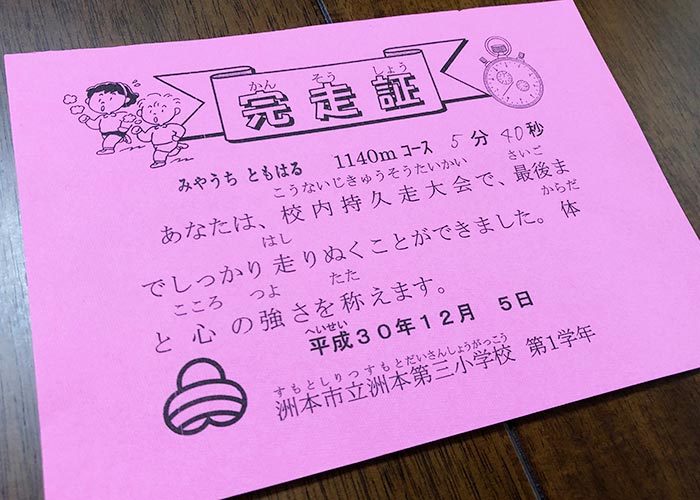 かん そう しょう
完走証
みやうち ともはる 1140m コース 5分 40秒
こうないじきゅうそうたいかい さいご
あなたは、校内持久走大会で、最後ま
はし からだ
でしっかり走りぬくことができました。体
こころ つよ たた
と心の強さを称えます。
へいせい
平成30年12月 5日
すもとしりつすもとだいさんしょうがっこう
洲本市立洲本第三小学校 第1学年